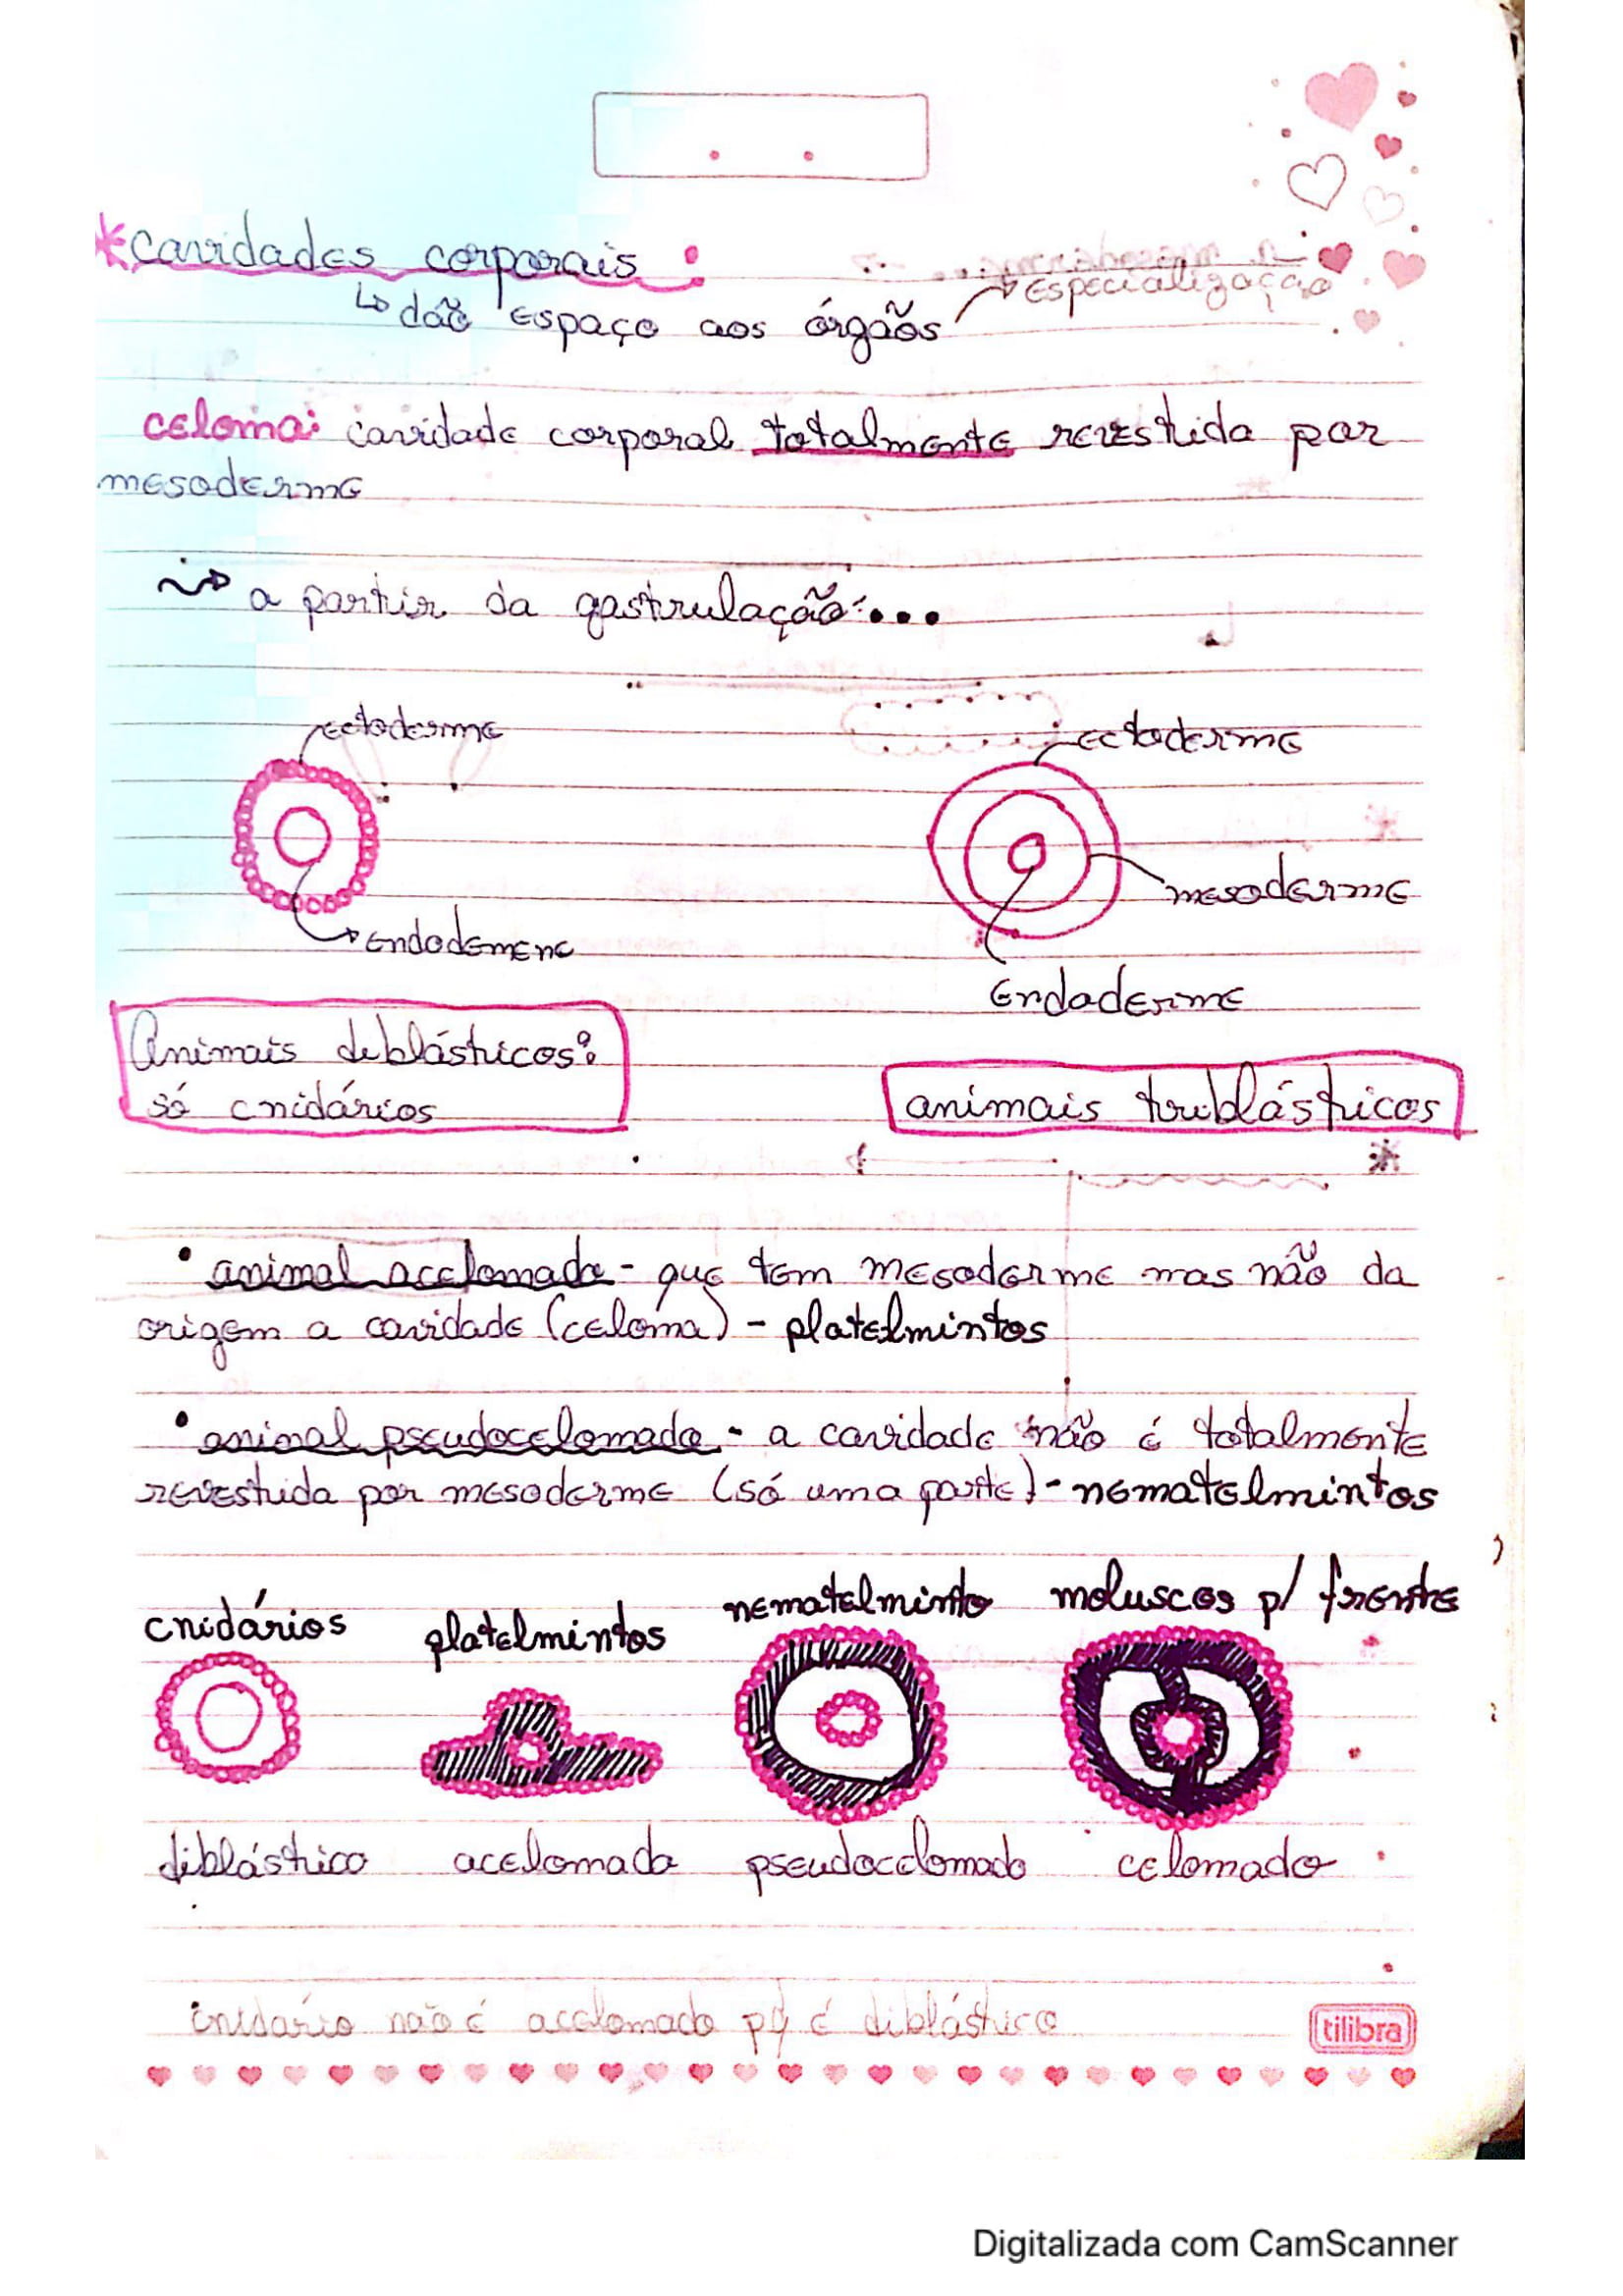 *cavidades corporais:
↳ dão espaço aos órgãos → especialização
celoma: cavidade corporal totalmente revestida por
mesoderme
⤳ a partir da gastrulação...
ectoderme
ectoderme
mesoderme
endodemene
endoderme
Animais diblásticos:
só cnidários
animais triblásticos
• animal acelomado - que tem mesoderme mas não da
origem a cavidade (celoma) - platelmintos
• animal pseudocelomado - a cavidade não é totalmente
revestida por mesoderme (só uma parte) - nematelmintos
cnidários platelmintos nematelminto moluscos p/ frente
diblástico acelomado pseudocelomado celomado
cnidário não é acelomado pq é diblástico
tilibra
Digitalizada com CamScanner